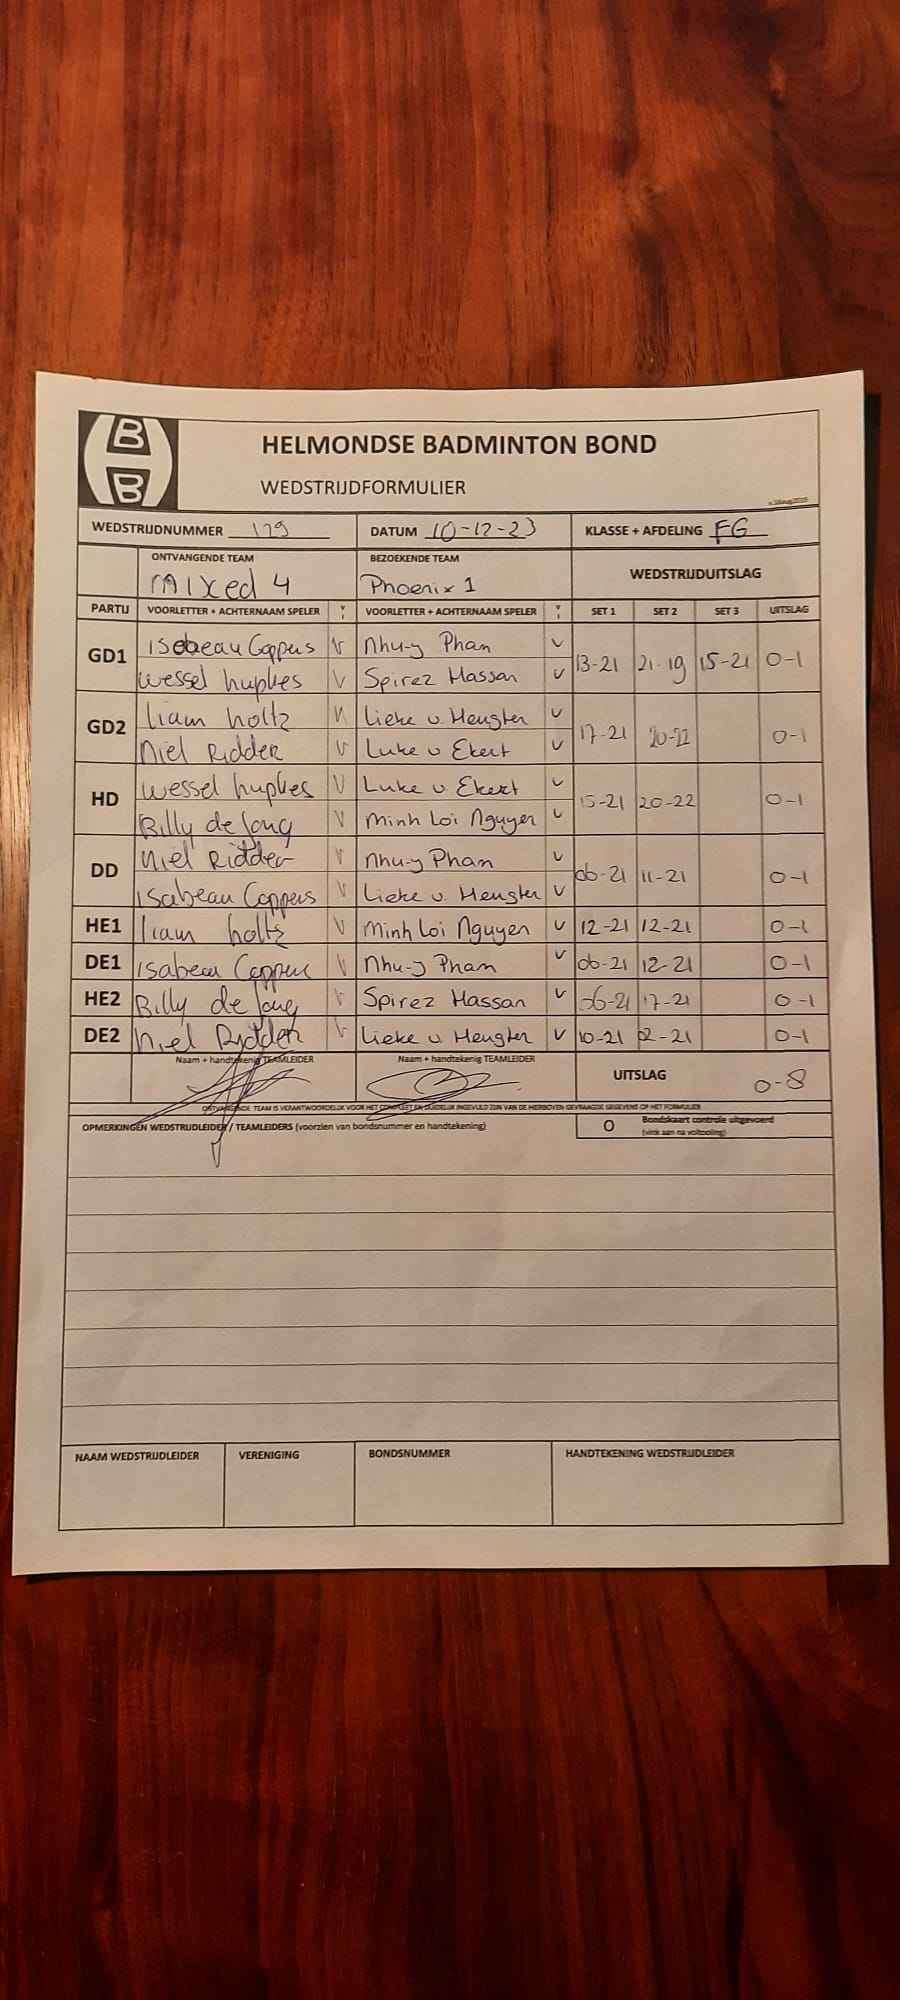 HBB
HELMONDSE BADMINTON BOND
WEDSTRIJDFORMULIER
WEDSTRIJDNUMMER 129 DATUM 10-12-23 KLASSE + AFDELING FG
ONTVANGENDE TEAM BEZOEKENDE TEAM WEDSTRIJDUITSLAG
Mixed 4 Phoenix 1
PARTIJ VOORLETTER + ACHTERNAAM SPELER V I VOORLETTER + ACHTERNAAM SPELER V I SET 1 SET 2 SET 3 UITSLAG
GD1 isabeau Coppers V Nhu-y Phan V 13-21 21-19 15-21 0-1
wessel hupkes V Spirez Hassan V
GD2 liam holtz V Lieke v. Heugten V 17-21 20-22 0-1
Niel Ridder V Luke v Ekert V
HD wessel hupkes V Luke v Ekert V 15-21 20-22 0-1
Billy de Jong V Minh Loi Nguyen V
DD Niel Ridder V Nhu-y Phan V 06-21 11-21 0-1
isabeau Coppers V Lieke v. Heugten V
HE1 liam holtz V Minh Loi Nguyen V 12-21 12-21 0-1
DE1 isabeau Coppers V Nhu-y Phan V 06-21 12-21 0-1
HE2 Billy de Jong V Spirez Hassan V 06-21 17-21 0-1
DE2 Niel Rydder V Lieke v Heugten V 10-21 12-21 0-1
Naam + handtekenig TEAMLEIDER Naam + handtekenig TEAMLEIDER UITSLAG 0-8
ONTVANGENDE TEAM IS VERANTWOORDELIJK VOOR HET COMPLEET EN DUIDELIJK INGEVULD ZIJN VAN DE HIERBOVEN GEVRAAGDE GEGEVENS OP HET FORMULIER
OPMERKINGEN WEDSTRIJDLEIDER / TEAMLEIDERS (voorzien van bondsnummer en handtekening) O Bondskaart controle uitgevoerd
(vink aan na voltooiing)
NAAM WEDSTRIJDLEIDER VERENIGING BONDSNUMMER HANDTEKENING WEDSTRIJDLEIDER